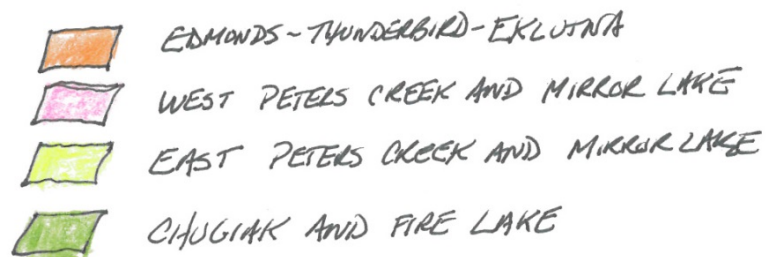 EDMONDS~THUNDERBIRD-EKLUTNA
WEST PETERS CREEK AND MIRROR LAKE
EAST PETERS CREEK AND MIRROR LAKE
CHUGIAK AND FIRE LAKE